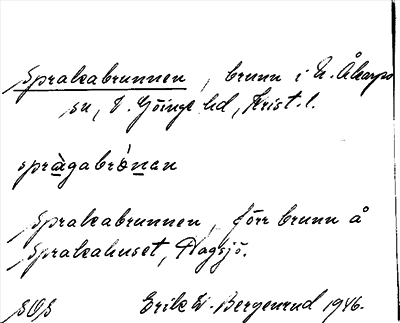 Sprakabrunnen, brunn i N. Åkarps
sn, V. Göinge hd, Krist. l.
spràgabrònen
Sprakabrunnen, förr brunn å
Sprakahuset, Dagsjö.
SOS Erik W. Bergenrud 1946.